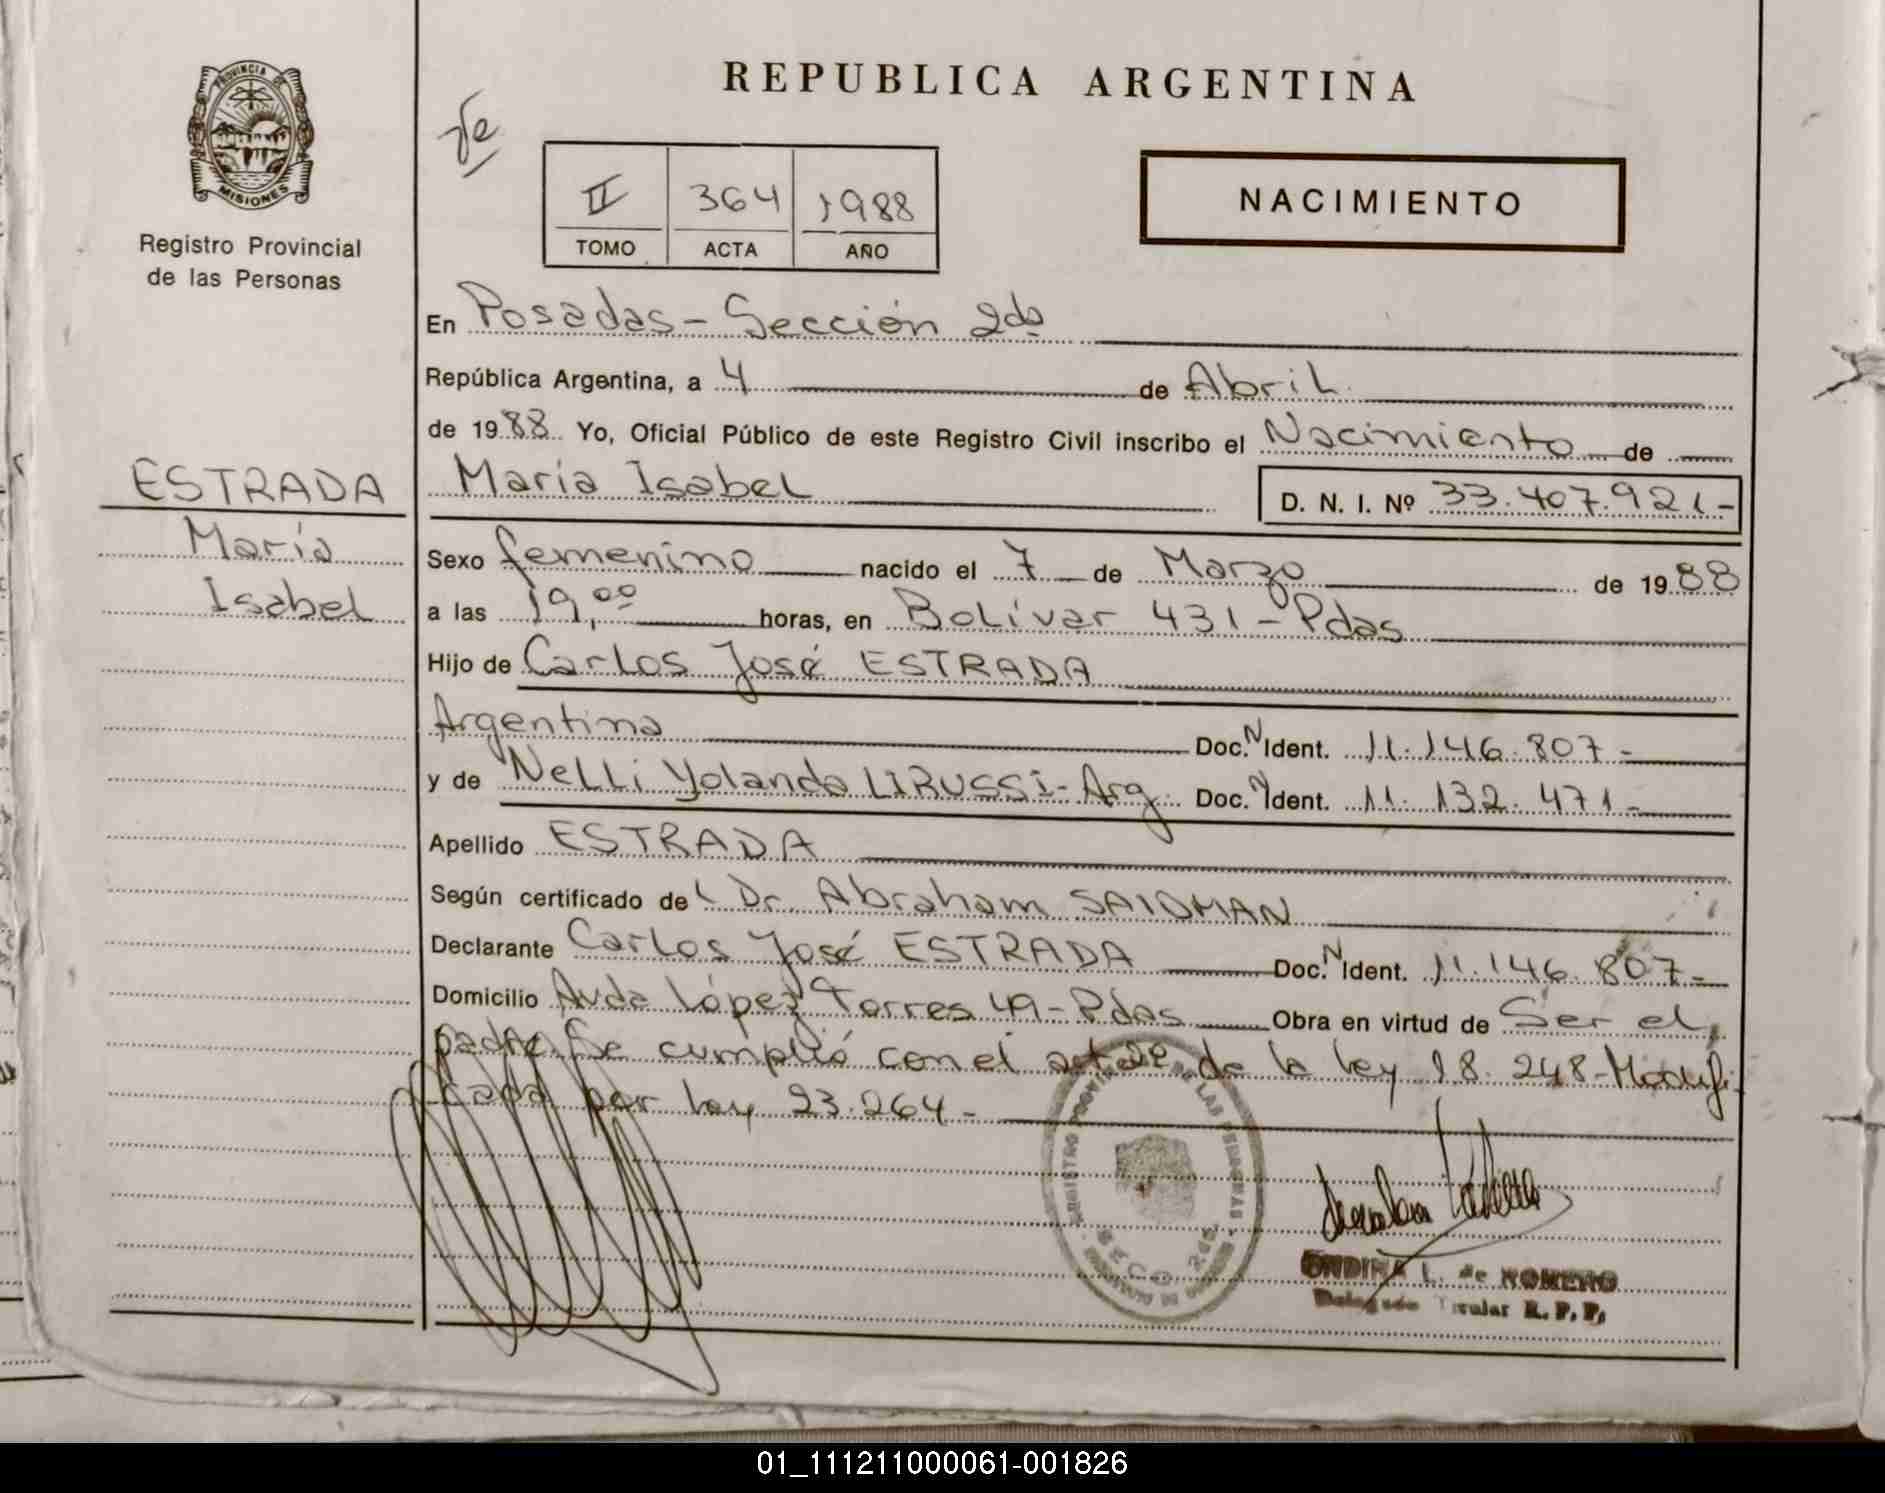 REPUBLICA ARGENTINA
PROVINCIA DE
MISIONES
Registro Provincial
de las Personas
II 364 1988
TOMO ACTA AÑO
NACIMIENTO
En Posadas - Sección 2da
República Argentina, a 4 de Abril
de 1988 Yo, Oficial Público de este Registro Civil inscribo el Nacimiento de
María Isabel D. N. I. Nº 33.407.921-
ESTRADA
María
Isabel
Sexo femenino nacido el 7 de Marzo de 1988
a las 19,00 horas, en Bolívar 431 - Pdas
Hijo de Carlos José ESTRADA
Argentina Doc. N Ident. 11.146.807-
y de Nelli Yolanda LIRUSSI - Arg. Doc. N Ident. 11.132.471-
Apellido ESTRADA
Según certificado del Dr. Abraham SAIDMAN
Declarante Carlos José ESTRADA Doc. N Ident. 11.146.807-
Domicilio Avda López Torres 49 - Pdas Obra en virtud de Ser el
padre. Se cumplió con el art 2º de la ley 18.248 - Modifi
cada por ley 23.264 -
REGISTRO PROVINCIAL DE LAS PERSONAS
SECC. 2da
ONDINA L. de ROMERO
Delegado Titular R. P. P.
01_111211000061-001826